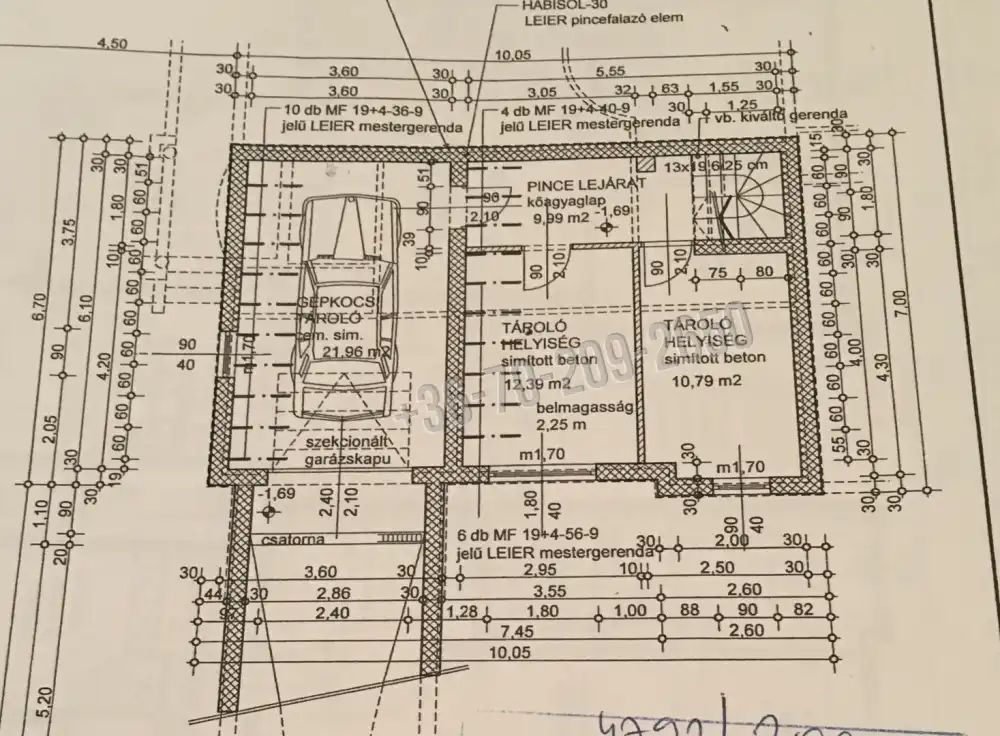 HABISOL-30
LEIER pincefalazó elem
4,50
10,05
30 3,60 30 5,55 30
30 3,60 30 3,05 32 63 1,55 30
30 1,25
10 db MF 19+4-36-9
jelű LEIER mestergerenda
4 db MF 19+4-40-9
jelű LEIER mestergerenda
vb. kiváltó gerenda
13x19,6/25 cm
PINCE LEJÁRAT
kőagyaglap
9,99 m2
-1,69
51
90
39
10
90
2,10
90
2,10
90
2,10
75 80
GÉPKOCSI
TÁROLÓ
em. sim.
21,96 m2
TÁROLÓ
HELYISÉG
simított beton
12,39 m2
TÁROLÓ
HELYISÉG
simított beton
10,79 m2
belmagasság
2,25 m
m1,70
m1,70
1,70
90
40
szekcionált
garázskapu
-1,69
2,40
2,10
csatorna
1,80
40
90
40
30
30
6 db MF 19+4-56-9
jelű LEIER mestergerenda
30 2,00 30
30 3,60 30 2,95 10 2,50 30
44 30 2,86 30 3,55 2,60
2,40 1,28 1,80 1,00 88 90 82
7,45 2,60
10,05
6,70
3,75
90
2,05
6,10
30
1,80
10
4,20
30
51
60
60
60
60
30
19
30
1,10
90
20
5,20
15
30
60
60
90
30
1,80
30
60
60
60
60
55
4,00
60
30
4,30
30
7,00
30
+36-70-209-2650